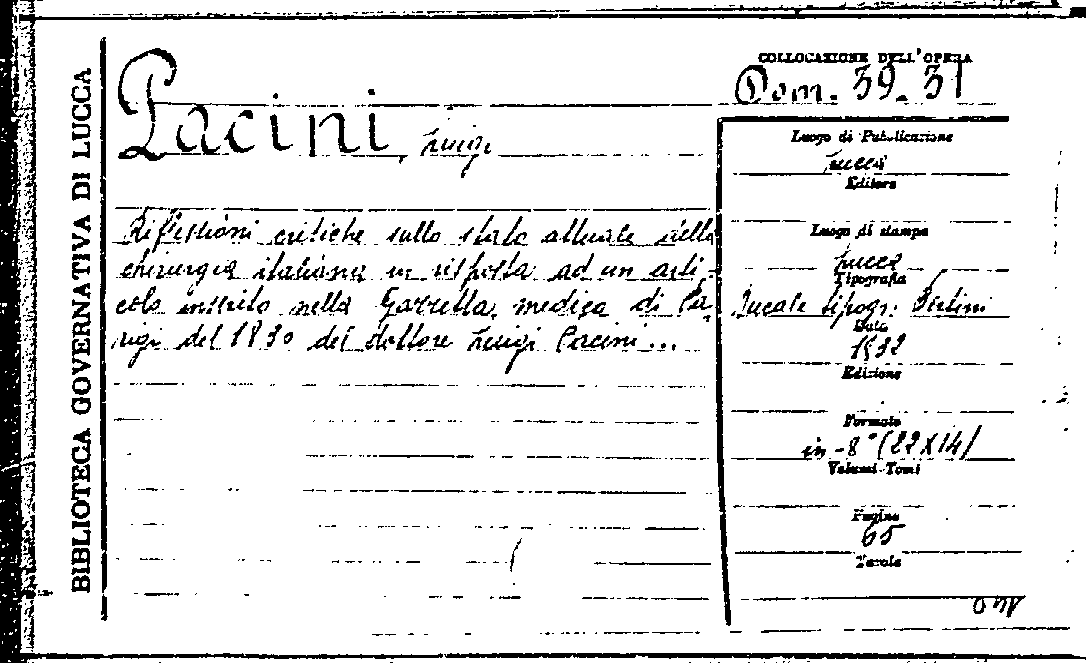 BIBLIOTECA GOVERNATIVA DI LUCCA
Pacini, Luigi
Riflessioni critiche sullo stato attuale della
chirurgia italiana in risposta ad un arti-
colo inserito nella Gazzetta medica di Pa-
rigi del 1830 del dottore Luigi Pacini...
COLLOCAZIONE DELL'OPERA
Dom. 39. 31
Luogo di Pubblicazione
Lucca
Editore
Luogo di stampa
Lucca
Tipografia
Ducale tipogr. Bertini
Data
1832
Edizione
Formato
in-8° (22X14)
Volumi-Tomi
Pagine
65
Tavole